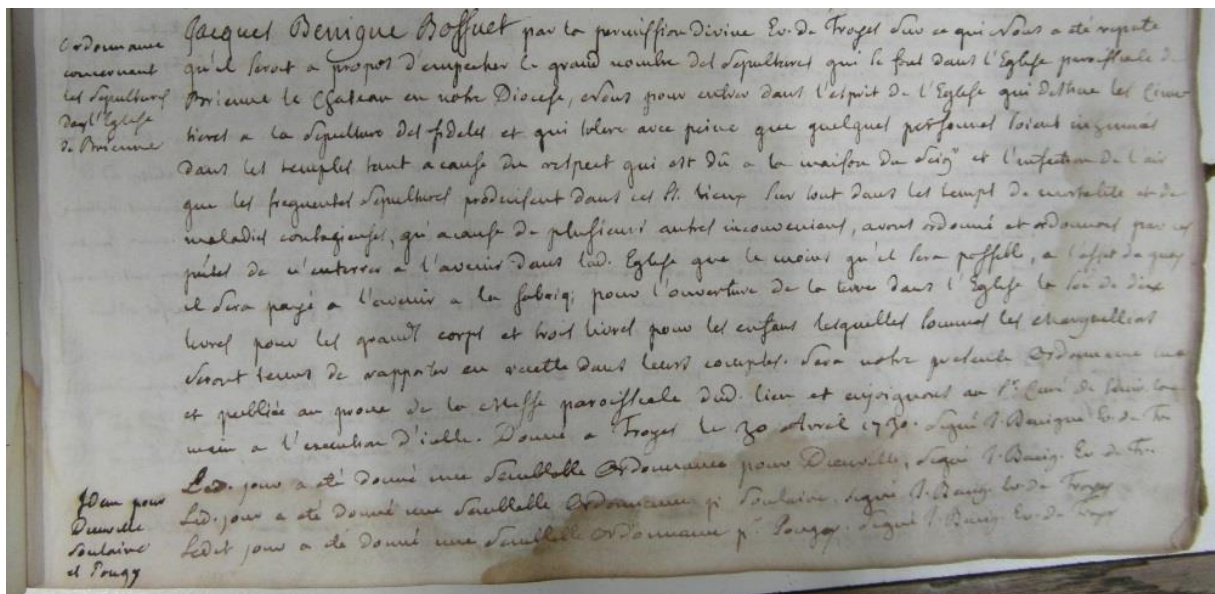 Ordonnance
concernant
les Sepultures
dans l'Eglise
de Brienne
Jacques Benigne Bossuet par la permission divine Ev. de Troyes Sur ce qui Nous a été representé
qu'il seroit a propos d'empecher le grand nombre des Sepultures qui se font dans l'Eglise paroissiale de
Brienne le Chateau en notre Diocese, Nous pour entrer dans l'esprit de l'Eglise qui destine les Cime-
tieres a la Sepulture des fideles et qui tolere avec peine que quelques personnes soient inhumés
dans les temples tant a cause du respect qui est dû a la maison du Seigr et l'infection de l'air
que les frequentes Sepultures produisent dans ces Sts lieux sur tout dans les temps de mortalité et de
maladies contagieuses, qu'a cause de plusieurs autres inconveniens, avons ordonné et ordonnons par ces
pntes de n'enterrer a l'avenir dans lad. Eglise que le moins qu'il sera possible, a l'effet de quoy
il sera payé a l'avenir a la fabriq; pour l'ouverture de la terre dans l'Eglise la so[mme] de dix
livres pour les grands corps et trois livres pour les enfans lesquelles sommes les marguelliers
seront tenus de rapporter en recette dans leurs comptes. Sera notre presente Ordonnance
et publiée au prone de la Messe paroissiale dud. lieu et enjoignons au Sr Curé de tenir la
main a l'execution d'icelle. Donné a Troyes le 30 Avril 1730. Signé J. Benigne Ev. de Tr.
Led. jour a été donné une semblable Ordonnance pour Dienville, signé J. Benig. Ev. de Tr.
Led. jour a été donné une semblable Ordonnance pr Soulaine. signé J. Benig. Ev. de Troyes
Ledit jour a été donné une semblable Ordonnance pr Pougy. signé J. Benig. Ev. de Troyes
Idem pour
Dienville
Soulaine
et Pougy